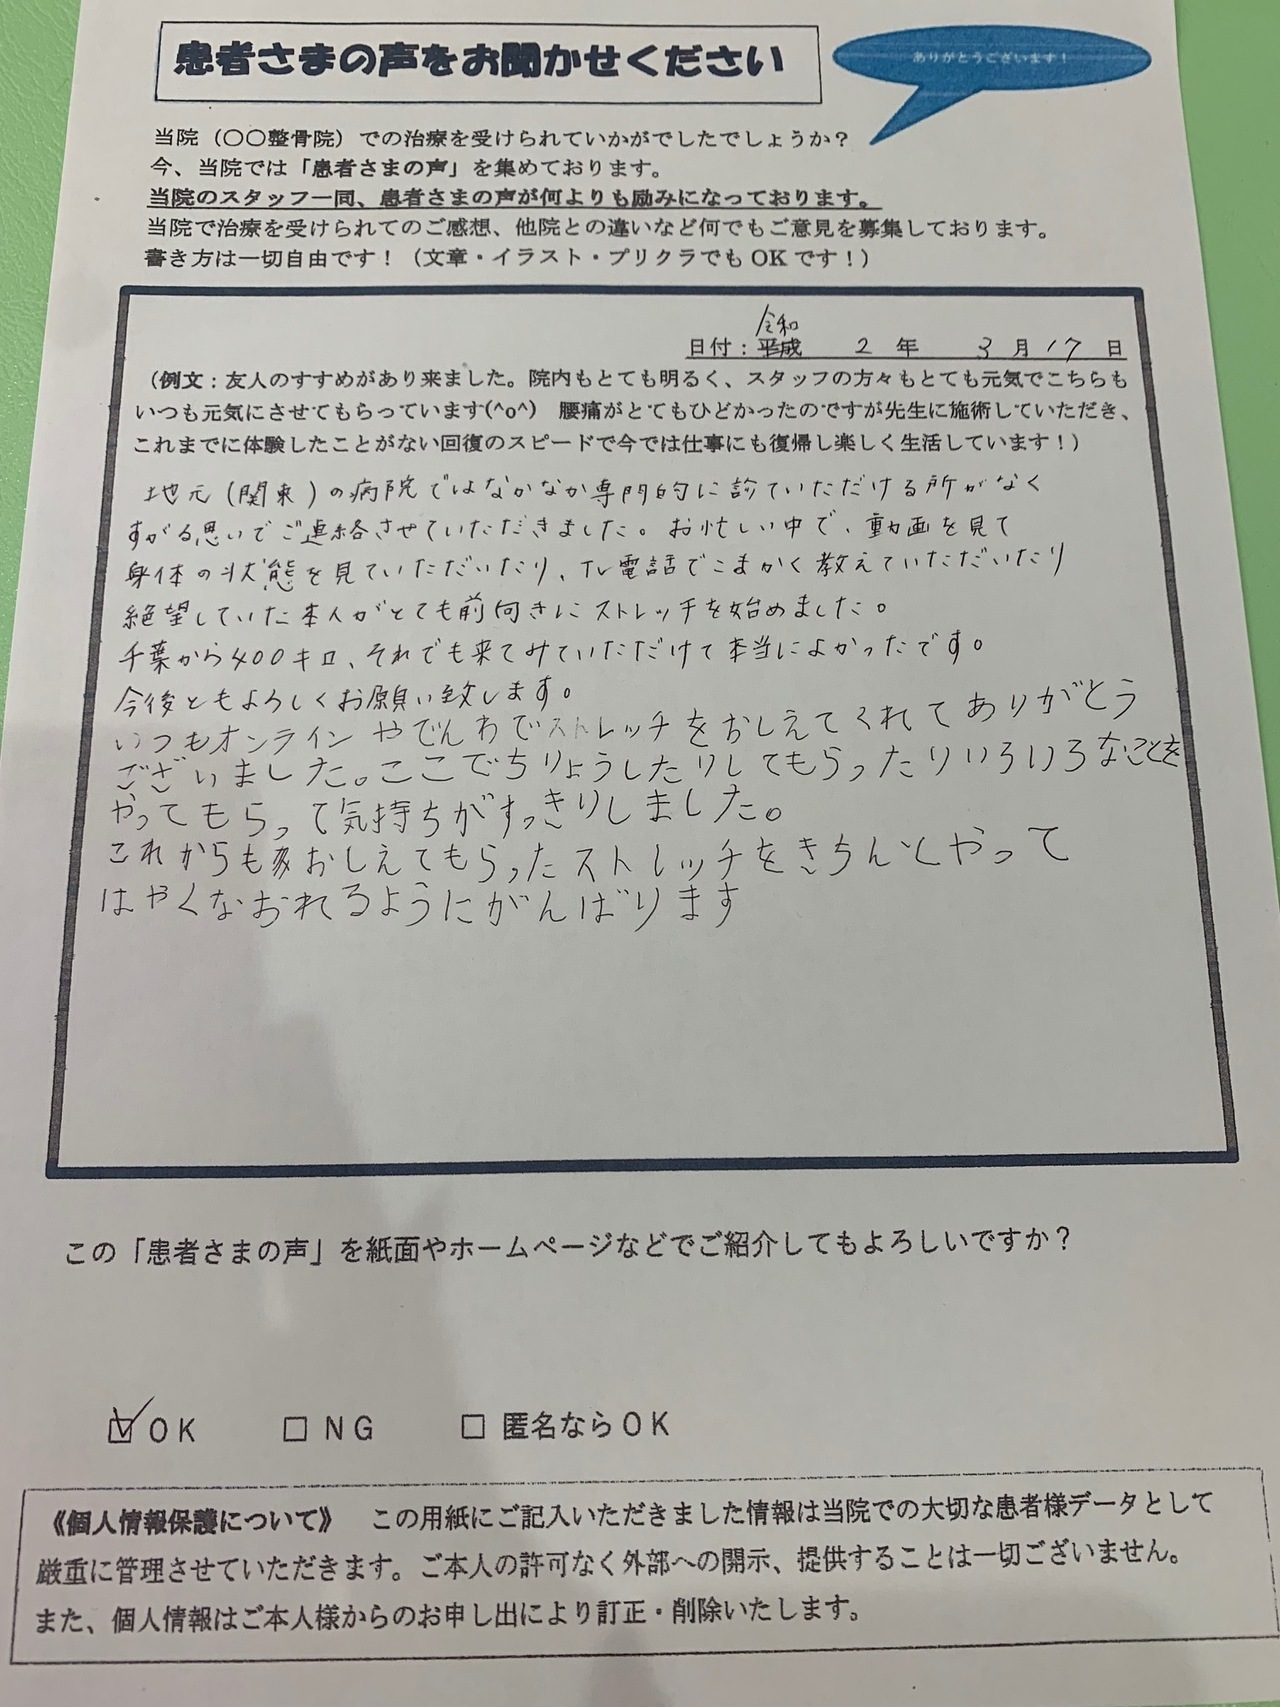 患者さまの声をお聞かせください
ありがとうございます！
当院（〇〇整骨院）での治療を受けられていかがでしたでしょうか？
今、当院では「患者さまの声」を集めております。
当院のスタッフ一同、患者さまの声が何よりも励みになっております。
当院で治療を受けられてのご感想、他院との違いなど何でもご意見を募集しております。
書き方は一切自由です！（文章・イラスト・プリクラでもOKです！）
令和
日付：平成 2 年 3 月 17 日
（例文：友人のすすめがあり来ました。院内もとても明るく、スタッフの方々もとても元気でこちらも
いつも元気にさせてもらっています(^o^) 腰痛がとてもひどかったのですが先生に施術していただき、
これまでに体験したことがない回復のスピードで今では仕事にも復帰し楽しく生活しています！）
地元(関東)の病院ではなかなか専門的に診ていただける所がなく
すがる思いでご連絡させていただきました。お忙しい中で、動画を見て
身体の状態を見ていただいたり、TV電話でこまかく教えていただいたり
絶望していた本人がとても前向きにストレッチを始めました。
千葉から400キロ、それでも来てみていただけて本当によかったです。
今後ともよろしくお願い致します。
いつもオンラインやでんわでストレッチをおしえてくれてありがとう
ございました。ここでちりょうしたりしてもらったりいろいろなことを
やってもらって気持ちがすっきりしました。
これからもおしえてもらったストレッチをきちんとやって
はやくなおれるようにがんばります
この「患者さまの声」を紙面やホームページなどでご紹介してもよろしいですか？
☑OK □NG □匿名ならOK
《個人情報保護について》 この用紙にご記入いただきました情報は当院での大切な患者様データとして
厳重に管理させていただきます。ご本人の許可なく外部への開示、提供することは一切ございません。
また、個人情報はご本人様からのお申し出により訂正・削除いたします。